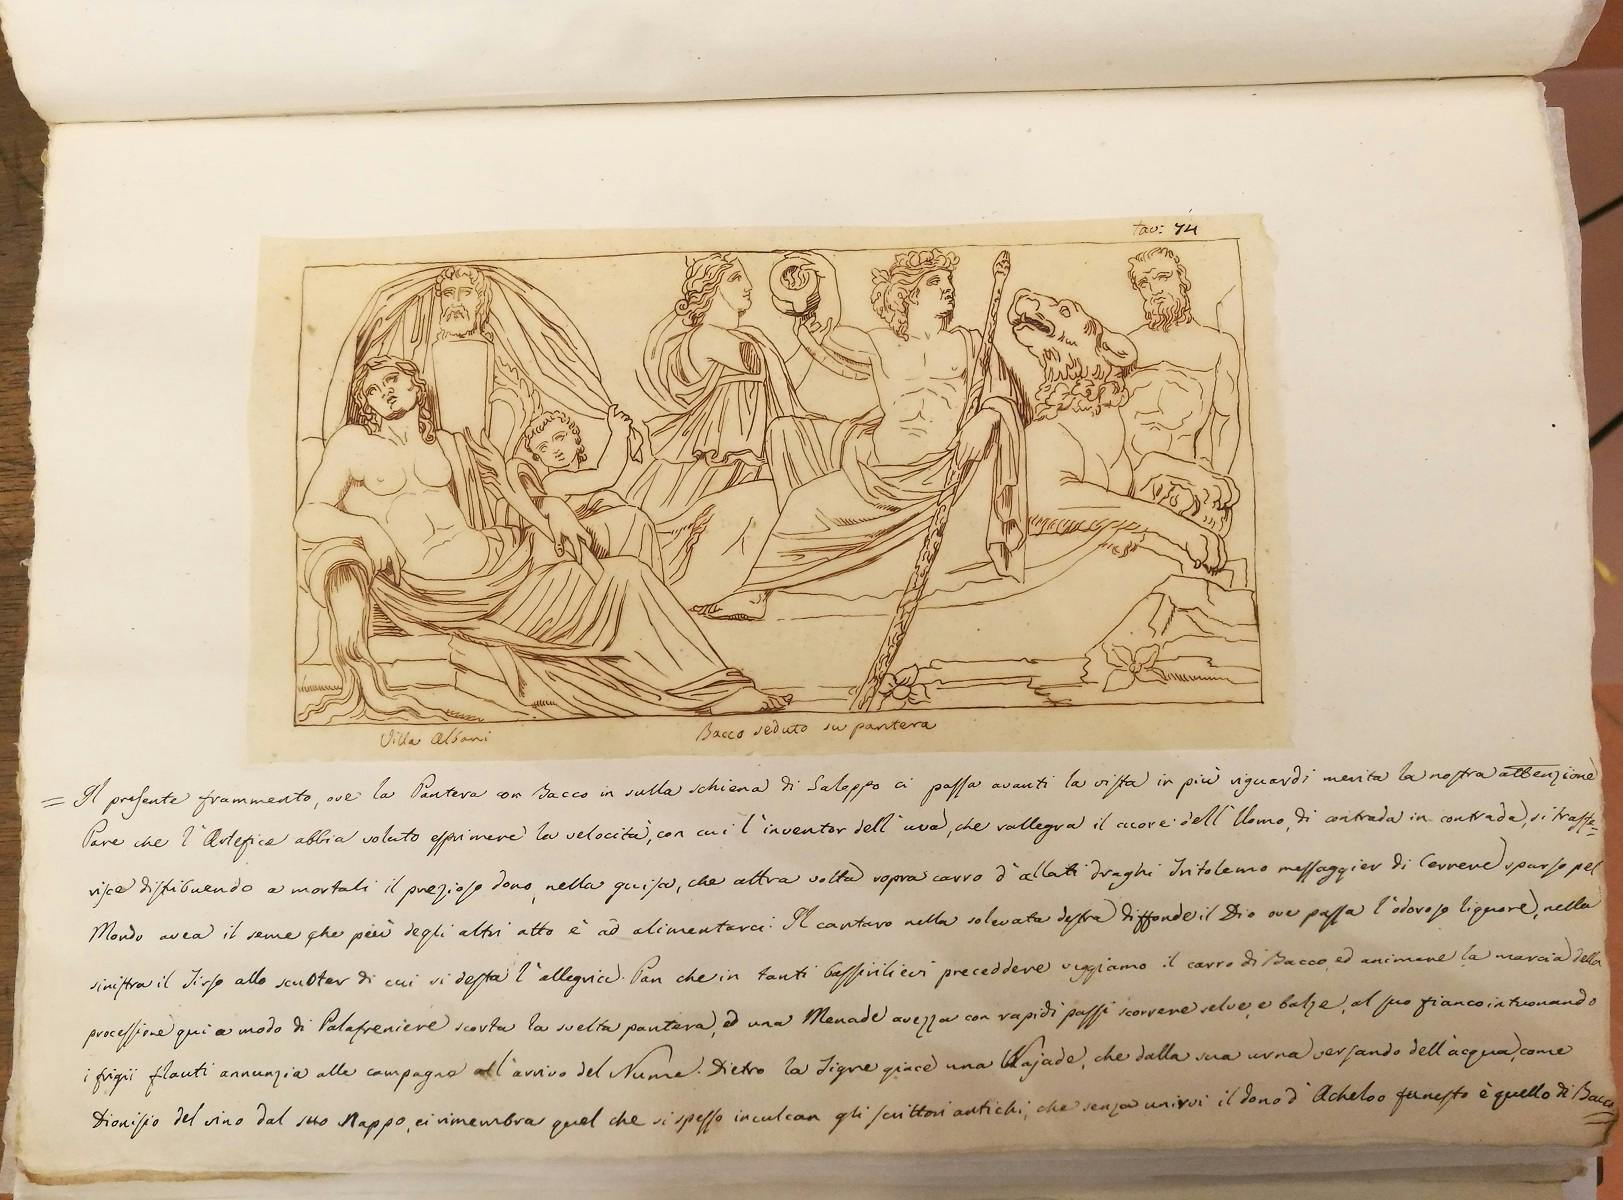 tav: 74
Villa Albani
Bacco seduto su pantera
= Il presente frammento, ove la Pantera con Bacco in sulla schiena di Galoppo ci passa avanti la vista in più riguardi merita la nostra attenzione
Pare che l'Artefice abbia voluto esprimere la velocità, con cui l'inventor dell'uva, che rallegra il cuore dell'Uomo, di contrada in contrada, si trasfe=
risce distibuendo a mortali il prezioso dono, nella guisa, che altra volta sopra carro d'allati draghi Tritolemo messaggier di Cerrere sparso pel
Mondo avea il seme che più degli altri atto è ad alimentarci. Il cantaro nella solevata destra diffonde il Dio ove passa l'odoroso liquore, nella
sinistra il Tirso allo scuoter di cui si desta l'allegria. Pan che in tanti bassirilievi preceddere veggiamo il carro di Bacco, ed animare la marcia della
processione qui a modo di Palafreniere scorta la svelta pantera, ed una Menade avezza con rapidi passi scorrere selve, e balze, al suo fianco intuonando
i frigii flauti annunzia alle campagne all'arrivo del Nume. Dietro la Tigre giace una Najade, che dalla sua urna versando dell'acqua, come
Dionisio del vino dal suo Nappo, ci rimembra quel che si spesso inculcan gli scrittori antichi, che senza unirvi il dono d'Acheloo funesto è quello di Bacco